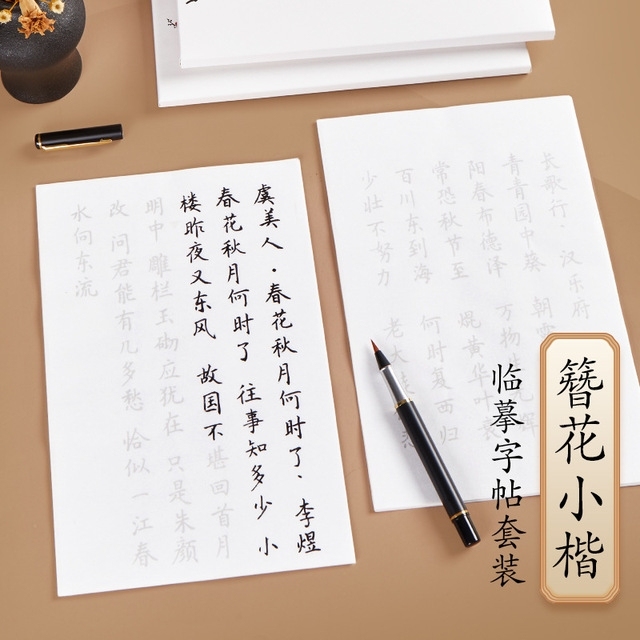 虞美人·春花秋月何时了·李煜
春花秋月何时了 往事知多少 小
楼昨夜又东风 故国不堪回首月
明中 雕栏玉砌应犹在 只是朱颜
改 问君能有几多愁 恰似一江春
水向东流
长歌行·汉乐府
青青园中葵 朝露
阳春布德泽 万物生光辉
常恐秋节至 焜黄华叶衰
百川东到海 何时复西归
少壮不努力 老大 悲
簪花小楷
临摹字帖套装